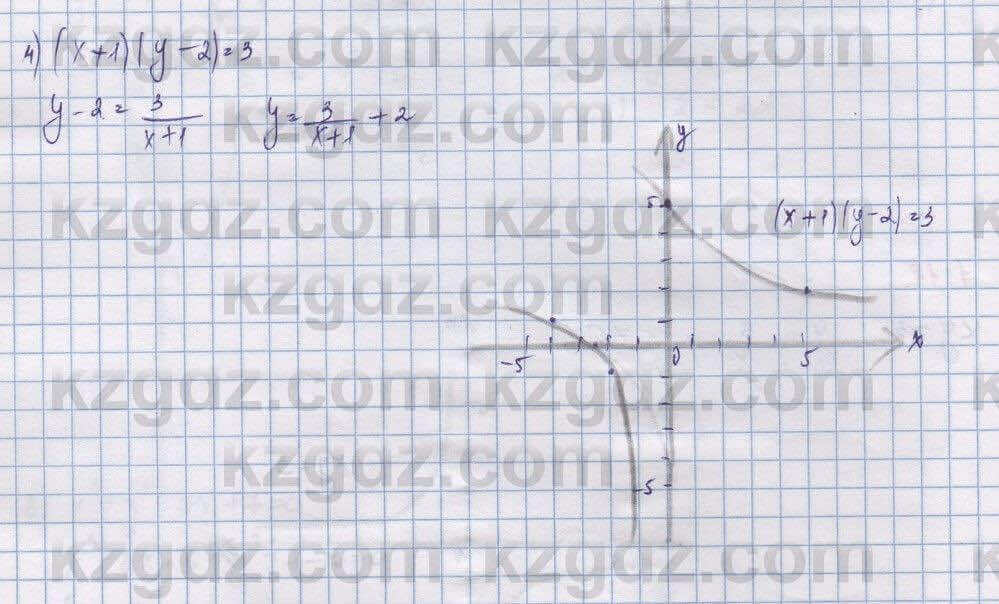 4) (x+1)(y-2)=3
y-2 = 3/(x+1)   y = 3/(x+1) + 2
y
5
(x+1)(y-2)=3
-5 0 5 x
-5
kzgdz.com kzgdz.com
kzgdz.com kzgdz.com
kzgdz.com kzgdz.com
kzgdz.com kzgdz.com
kzgdz.com kzgdz.com
kzgdz.com kzgdz.com
kzgdz.com kzgdz.com